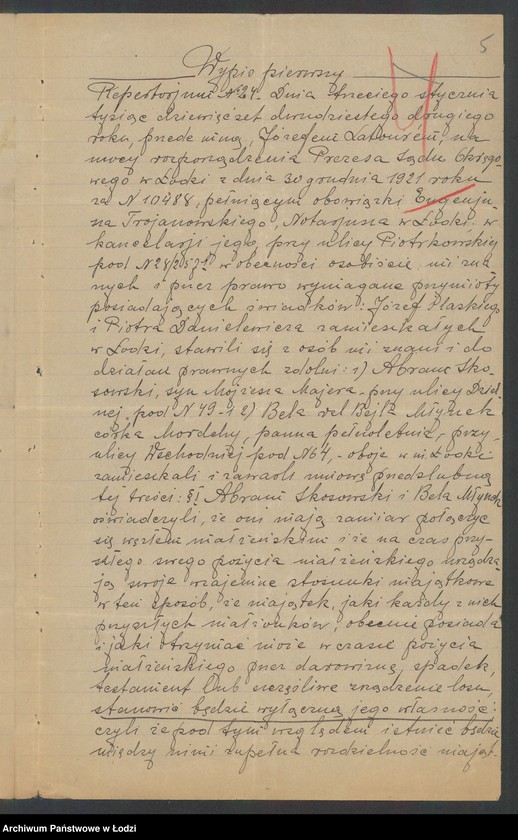 5
Wypis pierwszy
Repertorjum № 24. Dnia trzeciego stycznia
tysiąc dziewięćset dwudziestego drugiego
roku, przede mną, Józefem Latourem, na
mocy rozporządzenia Prezesa Sądu Okrę̨go-
wego w Łodzi z dnia 30 grudnia 1921 roku
za N 10488, pełniącym obowiązki Eugenju-
sza Trojanowskiego, Notarjusza w Łodzi, w
kancelarji jego, przy ulicy Piotrkowskiej
pod N w obecności osobiście mi zna-
nych i przez prawo wymagane przymioty
posiadających świadków: Józefa Maskiego
i Piotra Danielewicza zamieszkałych
w Łodzi, stawili się z osób mi znani i do
działań prawnych zdolni: 1) Abram Sko-
sowski, syn Mojżesza Majera, przy ulicy Dziel-
nej pod N 49 i 2) Bela vel Bejla Młynek
córka Mordchy, panna pełnoletnia, przy
ulicy Wschodniej pod N 64, oboje w m. Łodzi
zamieszkali i zawarli umowę przedślubną
tej treści: §1 Abram Skosowski i Bela Młynek
oświadczyli, że oni mają zamiar połączyć
się węzłem małżeńskim i że na czas przy-
szłego swego pożycia małżeńskiego urządza-
ją swoje wzajemne stosunki majątkowe
w ten sposób, że majątek, jaki każdy z nich
przyszłych małżonków, obecnie posiada
i jaki otrzymać może w czasie pożycia
małżeńskiego przez darowiznę, spadek,
testament lub szczęśliwe zrządzenie losu,
stanowić będzie wyłączną jego własność:
czyli że pod tym względem istnieć będzie
między nimi zupełna rozdzielność mająt-
Archiwum Państwowe w Łodzi